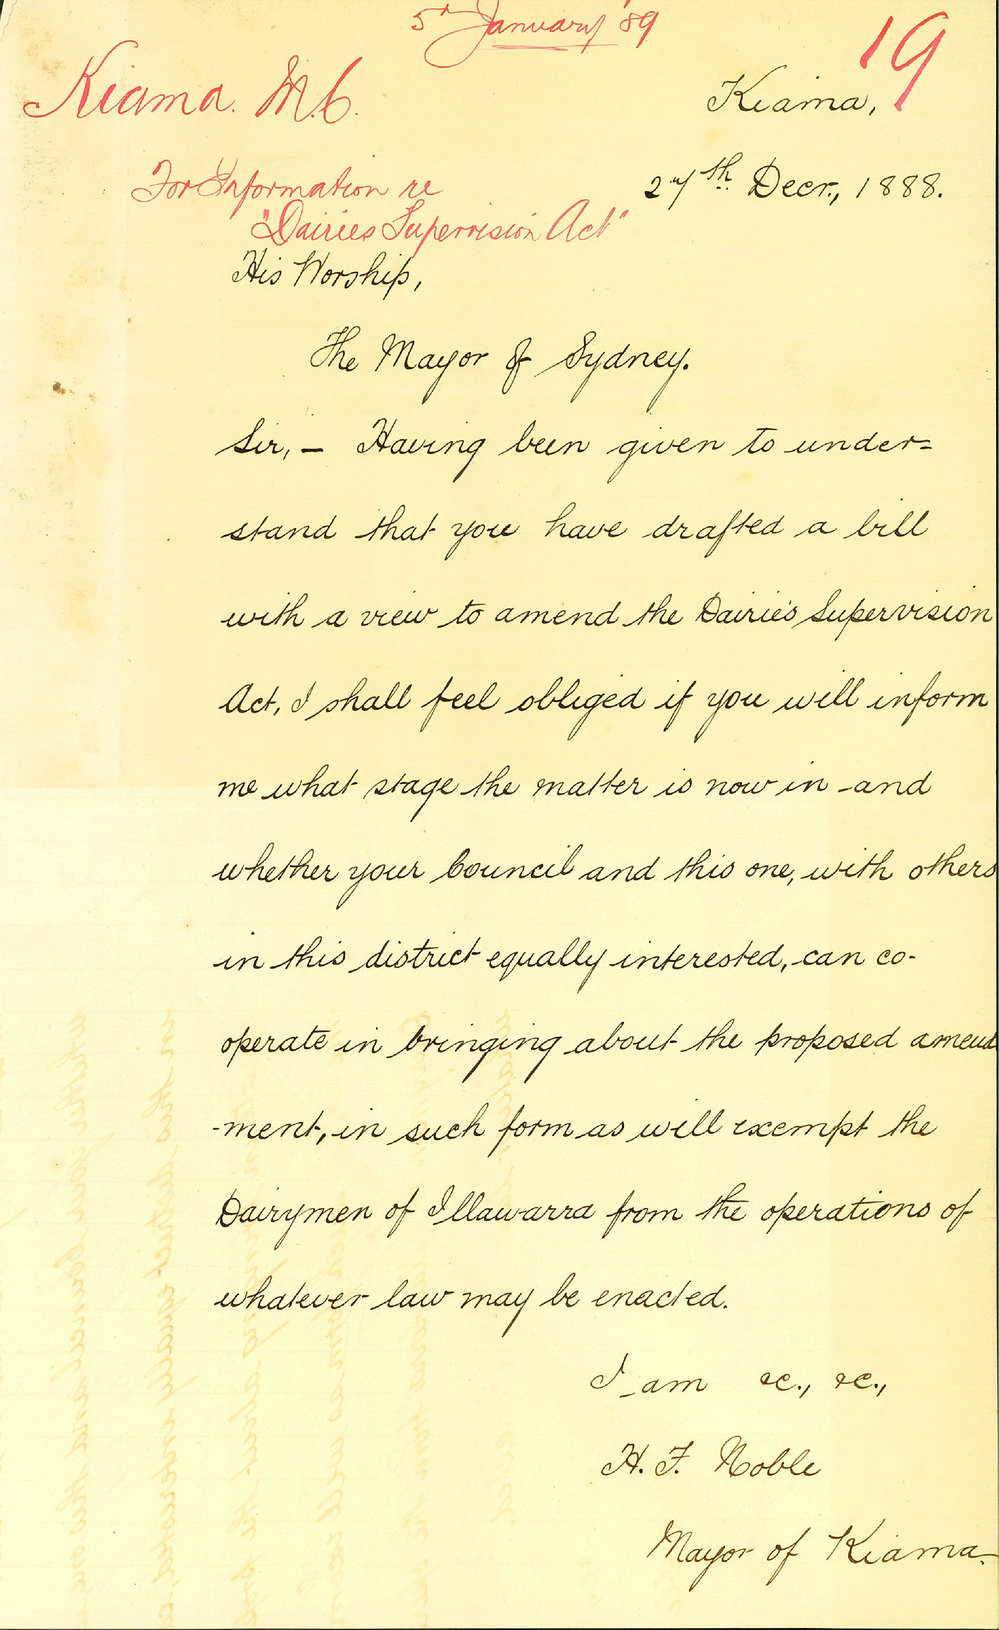 5th January '89
19
Kiama. M.C.
Kiama,
For Information re
27th Decr., 1888.
"Dairies Supervision Act"
His Worship,
The Mayor of Sydney.
Sir, — Having been given to under=
stand that you have drafted a bill
with a view to amend the Dairies Supervision
Act, I shall feel obliged if you will inform
me what stage the matter is now in and
whether your Council and this one, with others
in this district equally interested, can co-
operate in bringing about the proposed amend
-ment, in such form as will exempt the
Dairymen of Illawarra from the operations of
whatever law may be enacted.
I am &c., &c.,
H. F. Noble
Mayor of Kiama.